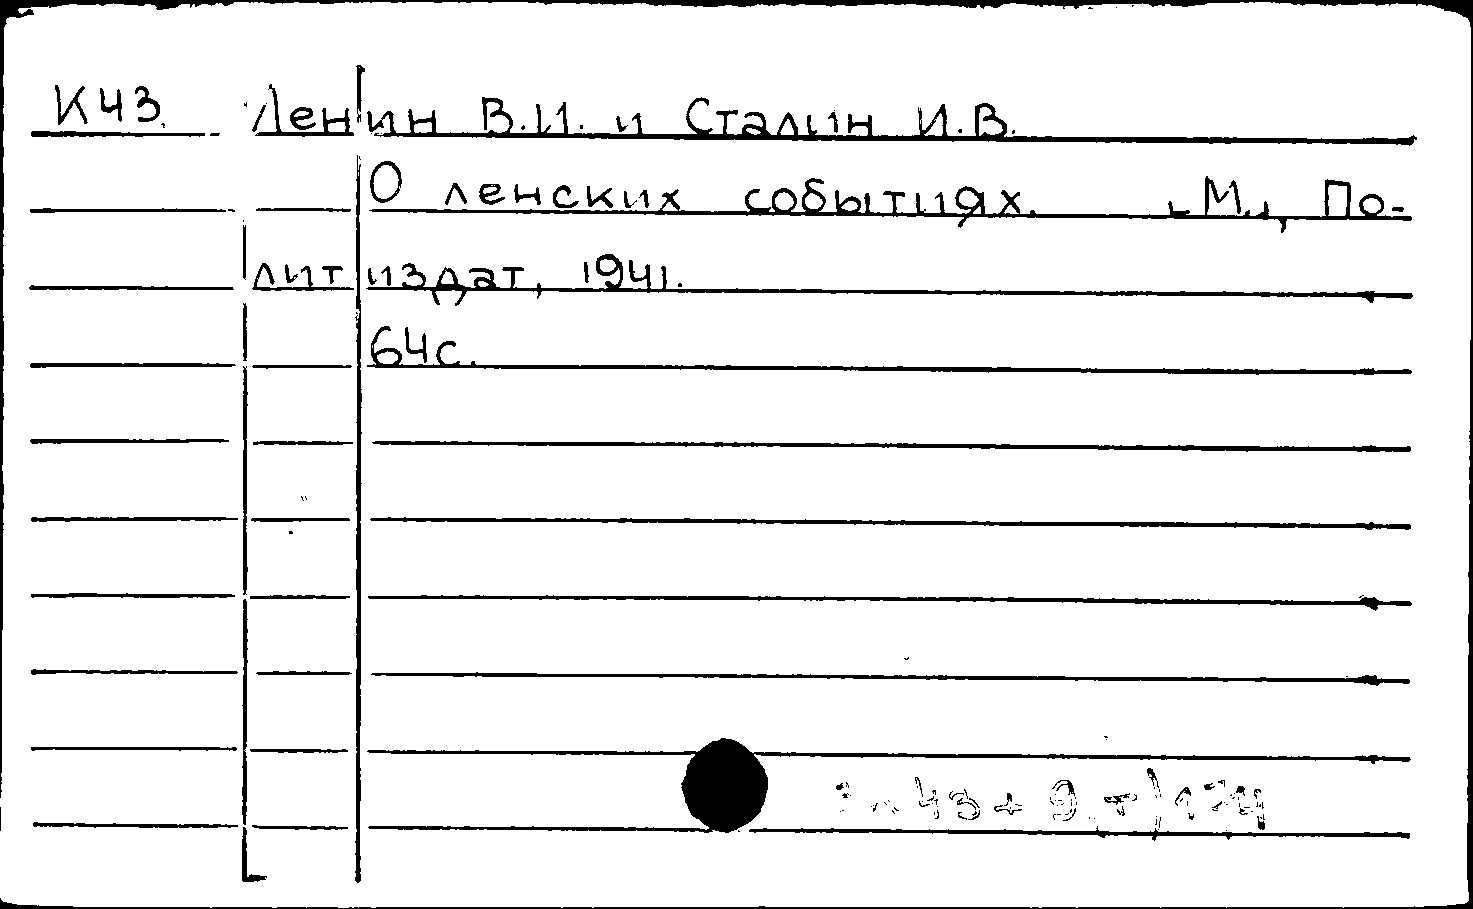 К43. Ленин В.И. и Сталин И.В.
О ленских событиях. [М.], По-
литиздат, 1941.
64с.